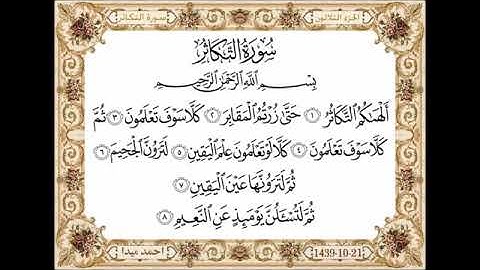 الجزء الثلاثون
سورة التكاثر
سُورَةُ التَّكَاثُرِ
بِسْمِ اللَّهِ الرَّحْمَٰنِ الرَّحِيمِ
أَلْهَىٰكُمُ التَّكَاثُرُ ١ حَتَّىٰ زُرْتُمُ الْمَقَابِرَ ٢ كَلَّا سَوْفَ تَعْلَمُونَ ٣ ثُمَّ
كَلَّا سَوْفَ تَعْلَمُونَ ٤ كَلَّا لَوْ تَعْلَمُونَ عِلْمَ الْيَقِينِ ٥ لَتَرَوُنَّ الْجَحِيمَ ٦
ثُمَّ لَتَرَوُنَّهَا عَيْنَ الْيَقِينِ ٧
ثُمَّ لَتُسْـَٔلُنَّ يَوْمَئِذٍ عَنِ النَّعِيمِ ٨
1439-10-21
احمد ميدا